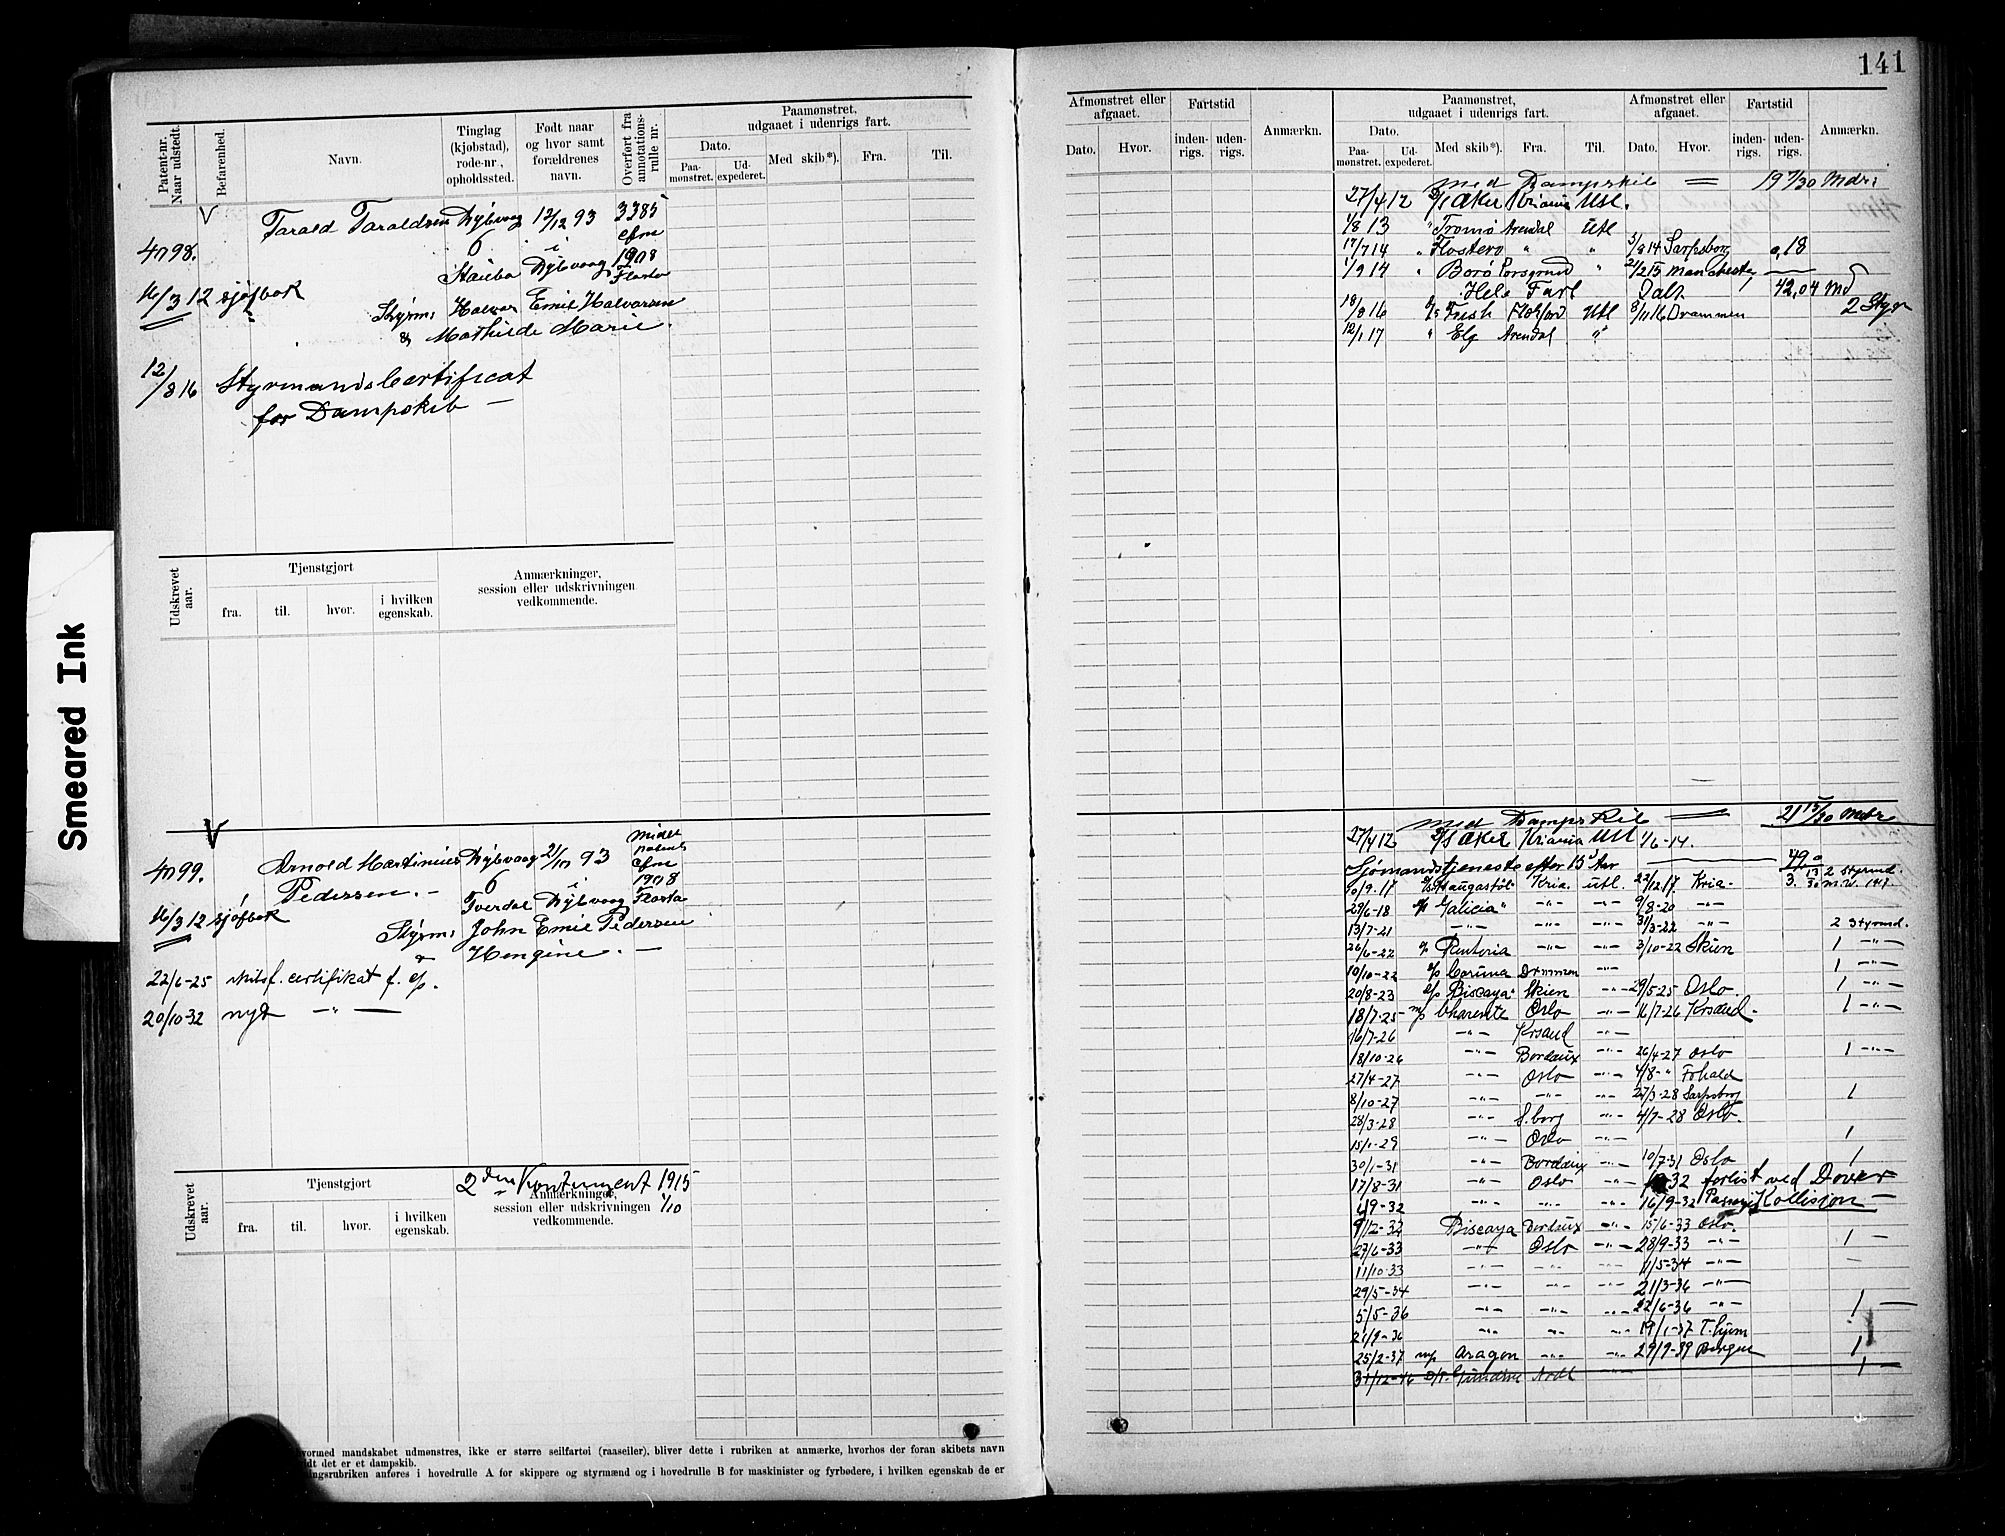 141
Smeared Ink
Patent-nr. Naar udstedt.
Befarenhed.
Navn.
Tinglag (kjøbstad), rode-nr., opholdssted.
Født naar og hvor samt forældrenes navn.
Overført fra annotations-rulle nr.
Paamønstret, udgaaet i udenrigs fart.
Dato.
Paa-mønstret.
Ud-expederet.
Med skib*).
Fra.
Til.
V
Tarald Taraldsen Dybvaag 12/12 93 3385
4098. 6 i 1908
Staubø Dybvaag Flosta
16/3 12 sjøfbok Styrm: Halvor Emil Halvorsen
& Mathilde Marie.
12/8 16 Styrmands Certificat
for Dampskib —
Udskrevet aar.
Tjenstgjort
fra.
til.
hvor.
i hvilken egenskab.
Anmærkninger, session eller udskrivningen vedkommende.
V
Arnold Martinius Dybvaag 21/10 93
4099. Pedersen. — 6 i 1908
Dybvaag Flosta
16/3 12 sjøfbok Styrm: John Emil Pedersen
22/6-25 certifikat f.
20/10-32 nyt —"—
2den Kontingent 1915
1/10
Udskrevet aar.
Tjenstgjort
fra.
til.
hvor.
i hvilken egenskab.
Anmærkninger, session eller udskrivningen vedkommende.
hvormed mandskabet udmønstres, ikke er større seilfartøi (raaseiler), bliver dette i rubriken at anmærke, hvorhos der foran skibets navn
dt det er et dampskib.
ingsrubriken anføres i hovedrulle A for skippere og styrmænd og i hovedrulle B for maskinister og fyrbødere, i hvilken egenskab de er
Afmønstret eller afgaaet.
Dato.
Hvor.
Fartstid
inden-rigs.
uden-rigs.
Anmærkn.
Paamønstret, udgaaet i udenrigs fart.
Dato.
Paa-mønstret.
Ud-expederet.
Med skib*).
Fra.
Til.
Afmønstret eller afgaaet.
Dato.
Hvor.
Fartstid
inden-rigs.
uden-rigs.
Anmærkn.
med Dampskib = 19 7/30 Mdr:
27/4 12 D/S Aker Kriania Utl.
1/8 13 " Tromø Arendal Utl
17/7 14 " Flosterø " " 5/8 14 Sarpsborg 0,18
1/9 14 " Borø Porsgrund " 2/2 15 Manchester
Hele Fart Ialt 42,04 Md
18/8 16 Utl 8/11 16 Drammen 2 Styr
12/1 17 " Elg Arendal "
med Dampskib = 21 15/30 Mdr
27/4 12 D/S Aker Kriania Utl 1/6-14.
Sjømandstjeneste efter 15 Aar 49
10/9.17 Haugastøl Kria. utl. 22/12.17 Kria. 2 Styrmd.
29/6-18 Galicia" —"— —"— 9/8-20 —"—
13/7-21 —"— —"— —"— 31/3-22 —"— 2 Styrmd.
26/6-22 —"— —"— 3/10-22 Skien 1 —"—
10/10-22 Drammen —"— 1 —"—
20/8-23 Biscaya" Skien —"— 29/5-25 Oslo. 1 —"—
18/7-25 m/s Charente Oslo —"— 16/7-26 Krsand. 1 —"—
16/7-26 —"— Krsand —"—
18/10-26 —"— Bordaux —"— 26/4-27 Oslo 1 —"—
27/4-27 —"— Oslo —"— 4/8-"
8/10-27 —"— —"— 27/3-28 Sarpsborg 1
28/3-28 —"— S.borg —"— 4/7-28 Oslo.
—"— Oslo —"— 1
30/1-31 —"— Bordaux —"— 10/7-31 Oslo 1
17/8-31 —"— Oslo —"— 32 forlist ved Dover
1/9-32 —"— —"— —"— 16/9-32 Kollision —
9/12-32 Biscaya Bordaux —"— 15/6-33 Oslo.
27/6-33 —"— Oslo —"— 28/9-33 —"— 1 —
11/10-33 —"— —"— —"— 11/5-34 —"— —
29/5-34 —"— —"— —"— 21/3-36 —"—
5/5-36 —"— —"— —"— 22/6-36 —"— 1 —
21/9-36 —"— —"— —"— 19/1-37 T.hjem 1
25/2-37 m/s Aragon —"— —"— 29/9-39 Bergen 1
31/12-46 1 —